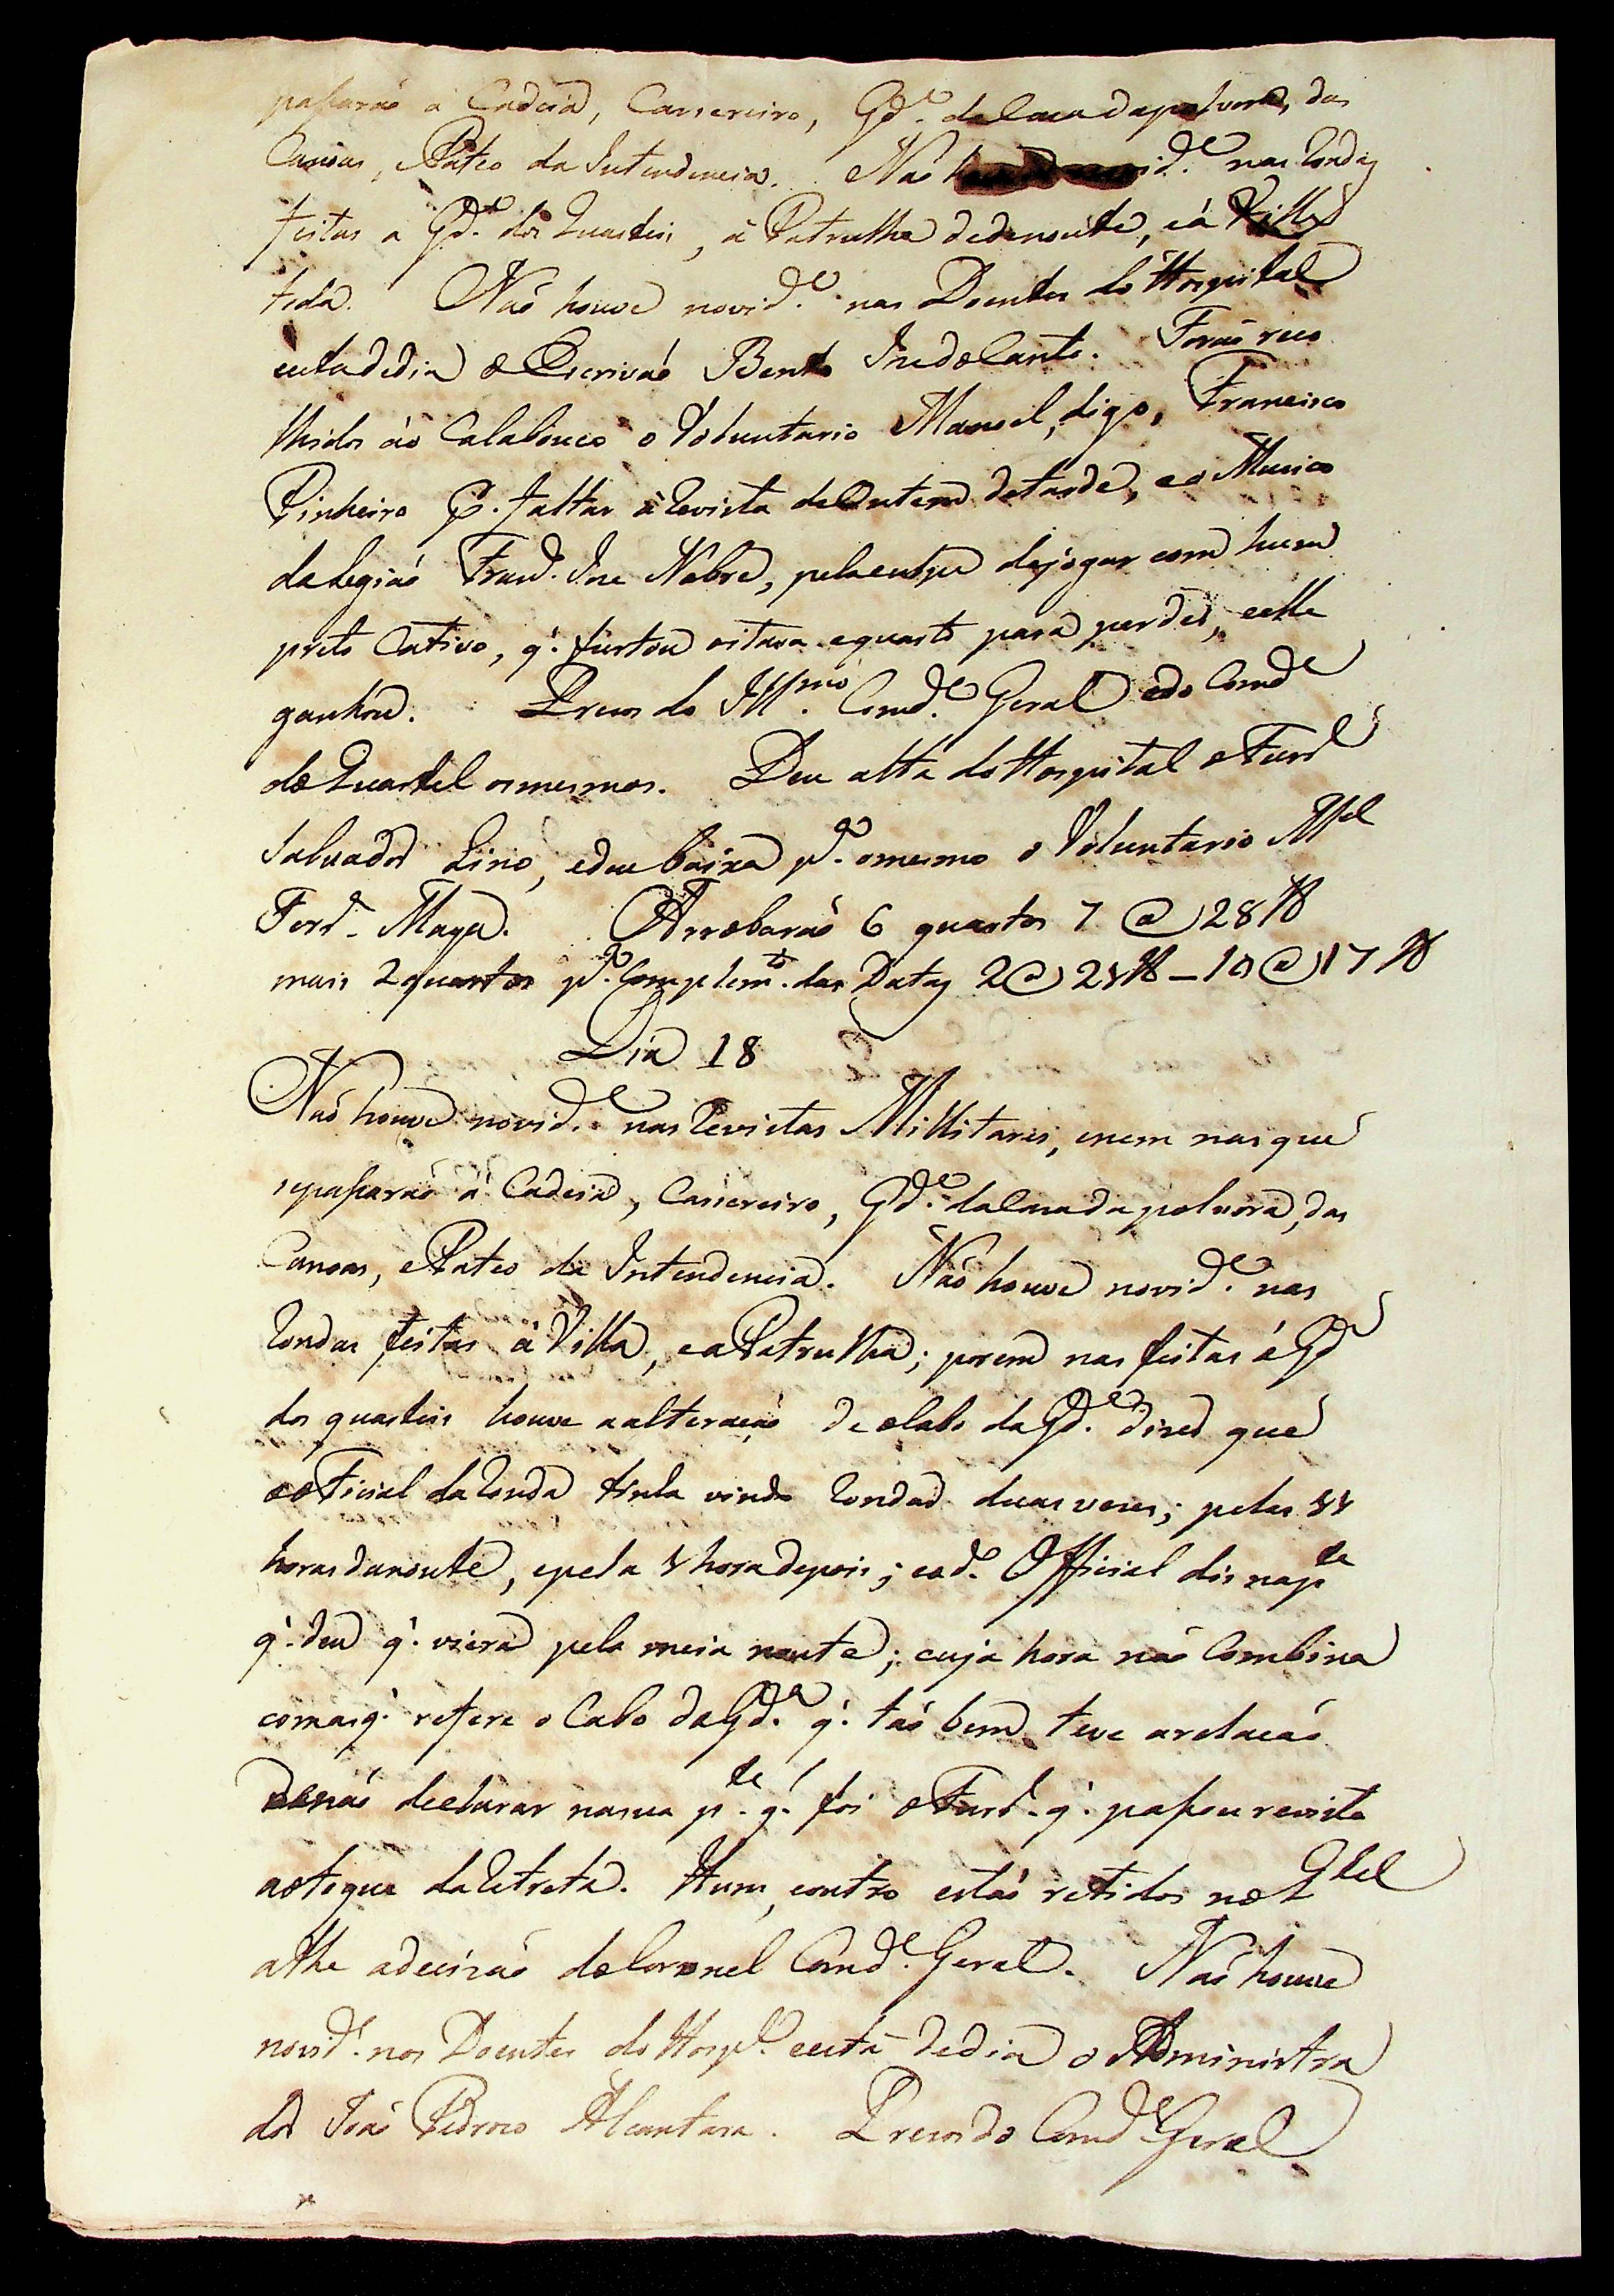 passarão á Cadeia, Carsereiro, Gd.ª da Casa da polvora, das
Canoas, e Pateo da Intendencia. Não houve novid.e nas Rondas
feitas a Gd.ª dos Quarteis, á Patrulha dedenoute, e á Villa
toda. Não houve novid.e nas Doentes do Hospital
e esta dedia o Escrivaõ Bento Joze do Canto. Foraõ reco
lhidos áo Calabouço o Voluntario Manoel, digo, Francisco
Pinheiro p.r faltar á Revista de Ontem detarde, e o Musico
da Legiaõ Fran.co Joze Nobre, pela culpa de jogar com hum
preto Cativo, q.' furtou oitava e quarto para perder, e elle
ganhou. Prezos do Ill.mo Comd.e Geral e do Comd.e
do Quartel os mesmos. Deu alta do Hospital o Furr.el
Salvador Lino, e deu baixa p.ª o mesmo o Voluntario M.el
Ferr.ª Maya. Arrobaraõ 6 quartos 7 @ 28 ℔
mais 2 quartos p.ª Complem.to das Datas 2 @ 21 ℔ _ 10 @ 17 ℔
Dia 18
Naõ houve novid.e nas Revistas Millitares, e nem nas que
se passaraõ á Cadeia, Carsereiro, Gd.ª da Casa da polvora, das
Canoas, e Pateo da Intendencia. Naõ houve novid.e nas
Rondas feitas á Villa, e a Patrulha; porem nas feitas á Gd.ª
dos quarteis houve a alteraçaõ de o Cabo da Gd.ª dizer que
o oficial da Ronda tinha vindo Rondar duas vezes; pelas 11
horas da noute, e pela 1 hora depois; e o d.º Official dis na p.te
q.' deu q.' viera pela meia noute; cuja hora naõ Combina
com as q.' refere o Cabo da Gd.ª q.' taõ bem teve a relaçaõ
de naõ declarar na sua p.te q.' foi o Furr.el q.' passou revista
ao toque da Retreta. Hum, e outro estaõ retidos no Q.tel
athe a decizaõ do Coronel Comd.e Geral. Naõ houve
novid.e nos Doentes do Hosp.al e está de dia o Administra
dor Joaõ Pedrozo Alcantara. Prezos do Comd.e Geral